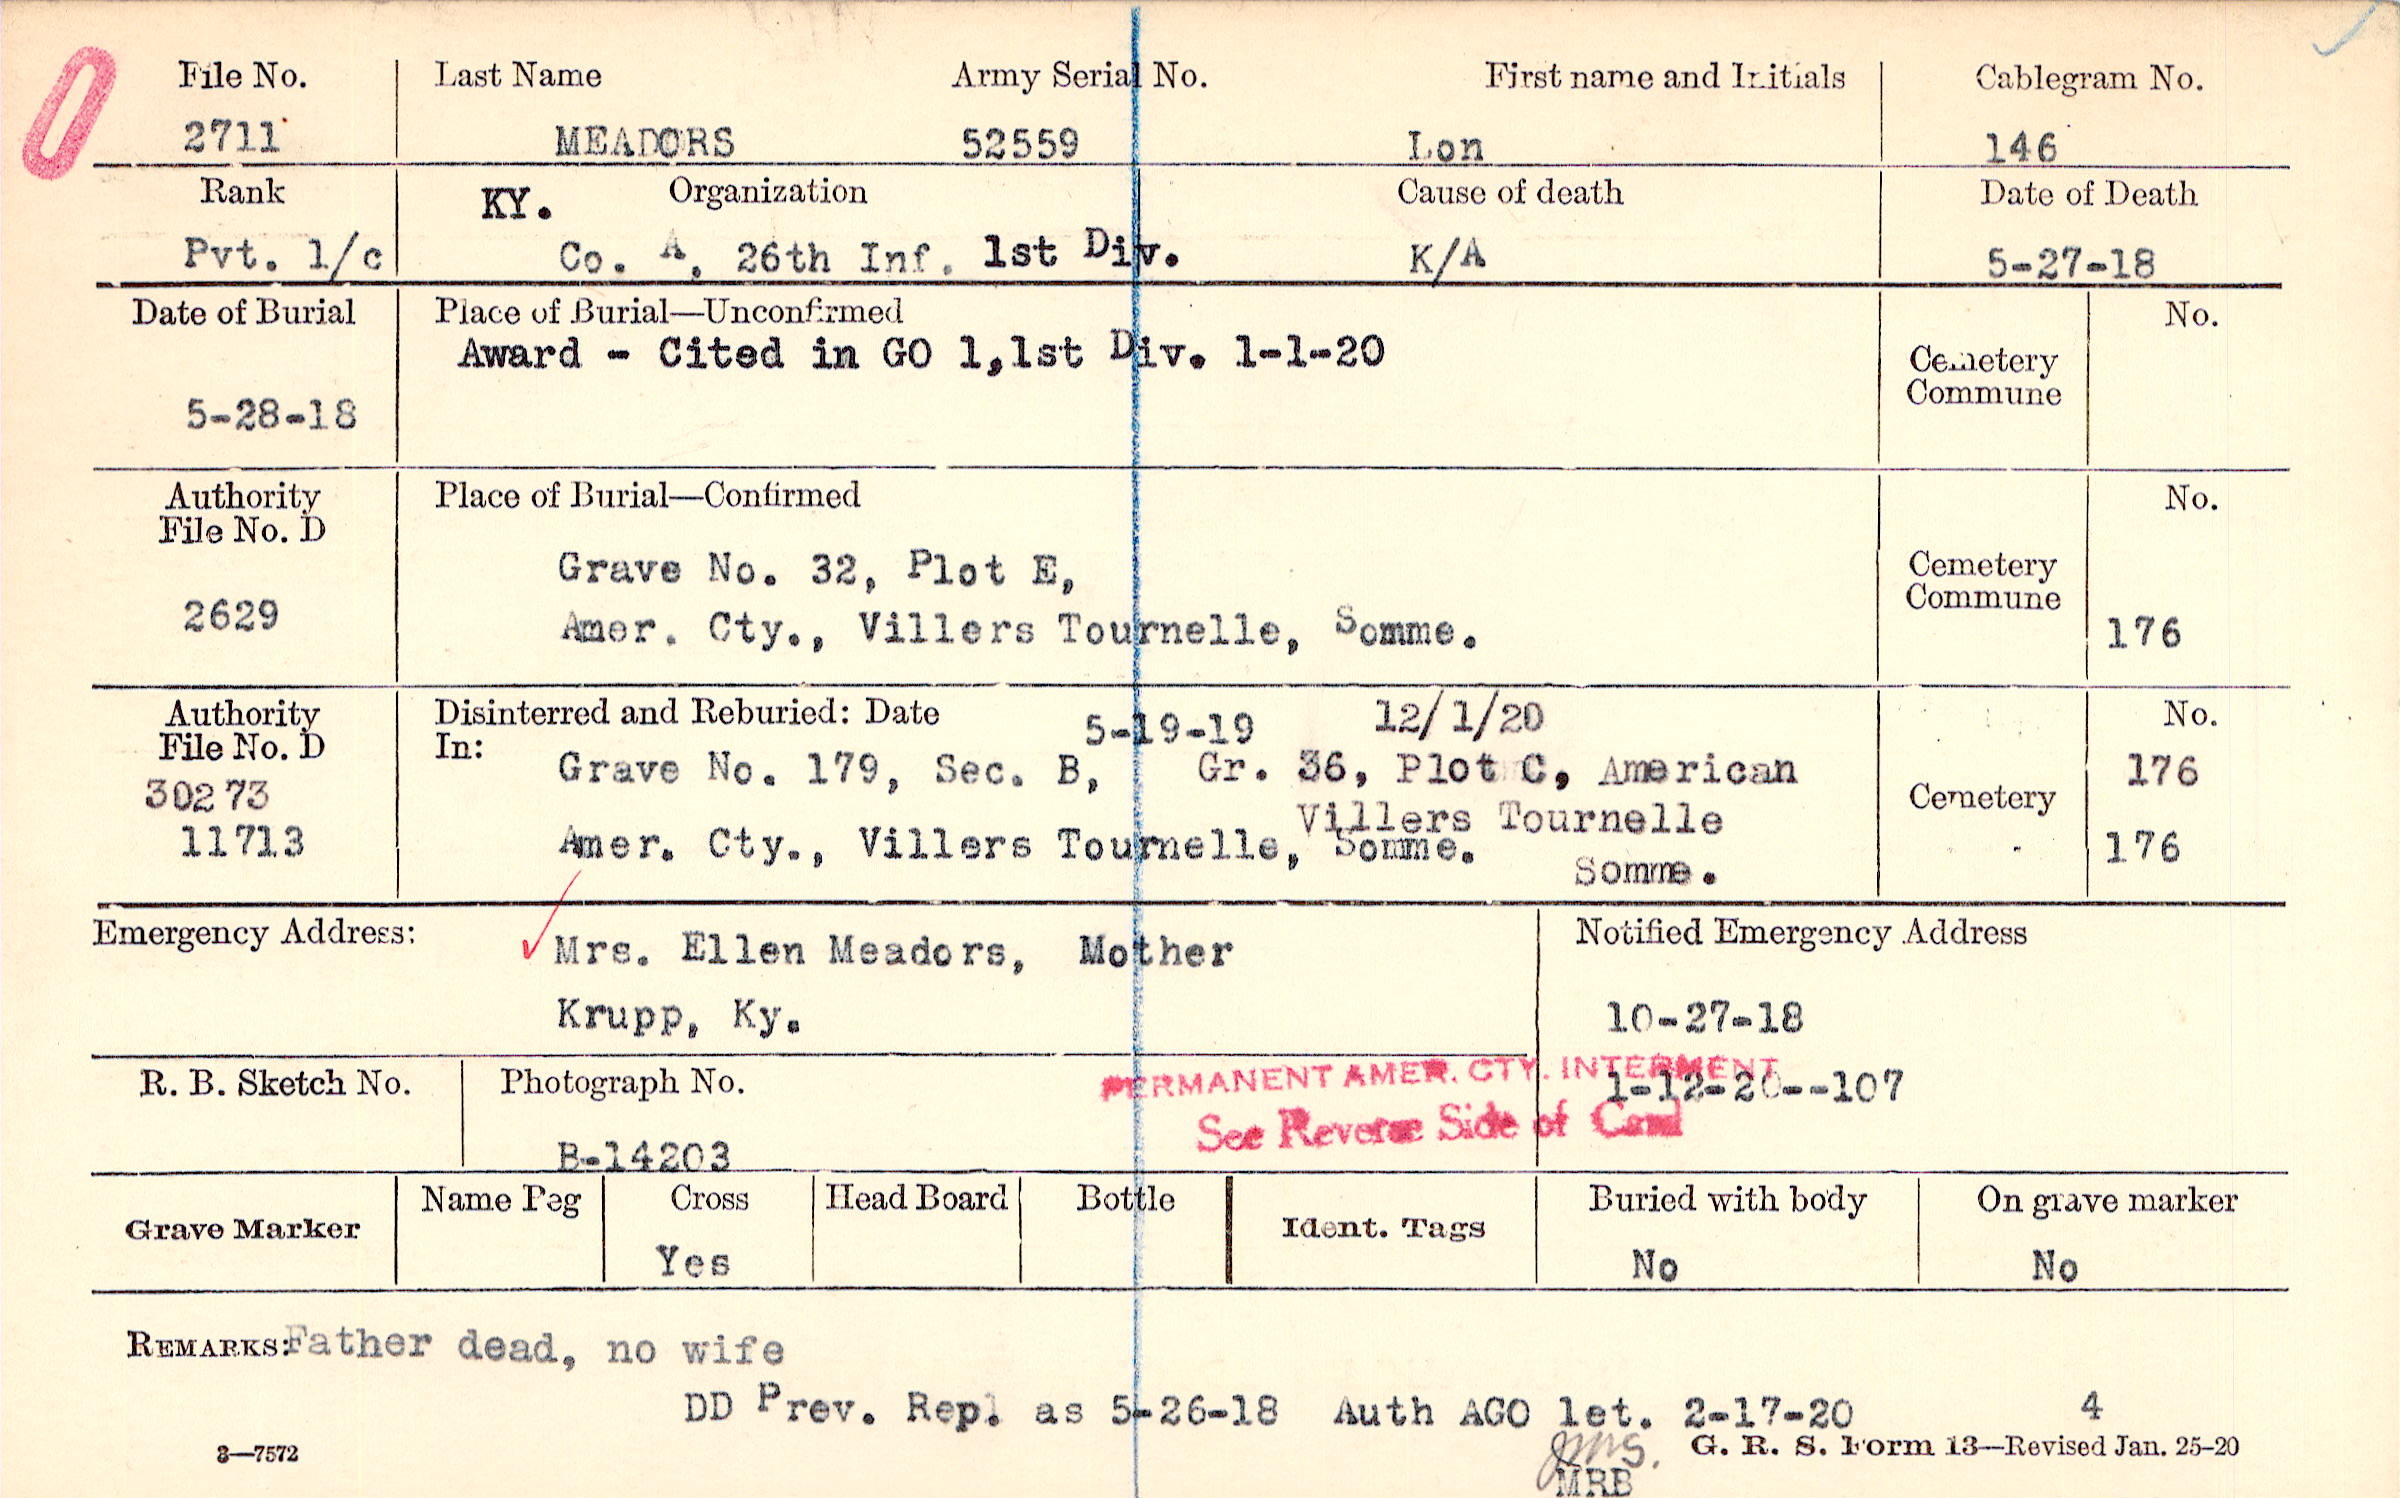 File No. Last Name Army Serial No. First name and Initials Cablegram No.
2711 MEADORS 52559 Lon 146
Rank KY. Organization Cause of death Date of Death
Pvt. 1/c Co. A, 26th Inf. 1st Div. K/A 5-27-18
Date of Burial Place of Burial—Unconfirmed No.
Award - Cited in GO 1,1st Div. 1-1-20
Cemetery
Commune
5-28-18
Authority Place of Burial—Confirmed No.
File No. D
Grave No. 32, Plot E, Cemetery
Commune
2629 Amer. Cty., Villers Tournelle, Somme. 176
Authority Disinterred and Reburied: Date 5-19-19 12/1/20 No.
File No. D In:
Grave No. 179, Sec. B, Gr. 36, Plot C, American 176
30273 Villers Tournelle Cemetery
11713 Amer. Cty., Villers Tournelle, Somme. 176
Somme.
Emergency Address: Notified Emergency Address
Mrs. Ellen Meadors, Mother
Krupp, Ky. 10-27-18
PERMANENT AMER. CTY. INTERMENT
R. B. Sketch No. Photograph No. 1-12-20--107
See Reverse Side of Card
B-14203
Grave Marker Name Peg Cross Head Board Bottle Ident. Tags Buried with body On grave marker
Yes No No
REMARKS: Father dead, no wife
DD Prev. Repl as 5-26-18 Auth AGO let. 2-17-20 4
3—7572 G. R. S. Form 13—Revised Jan. 25-20
MRB